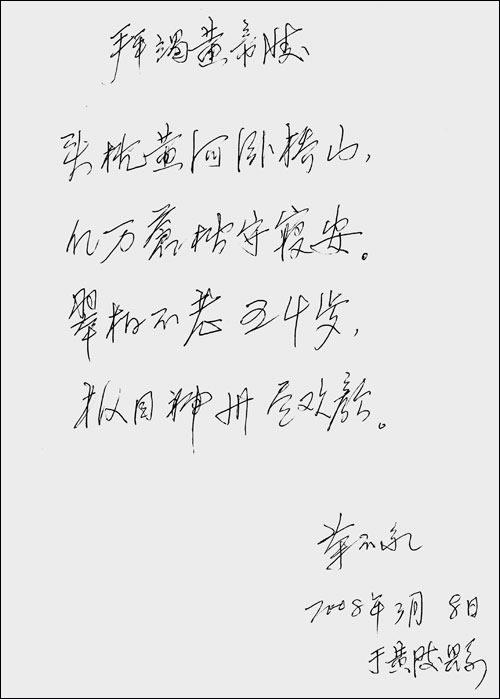 拜谒黄帝陵
头枕黄河卧桥山,
亿万蒼守寝安。
翠柏不老五千岁,
极目神州尽欢颜。
2008年3月8日
于黄陵縣